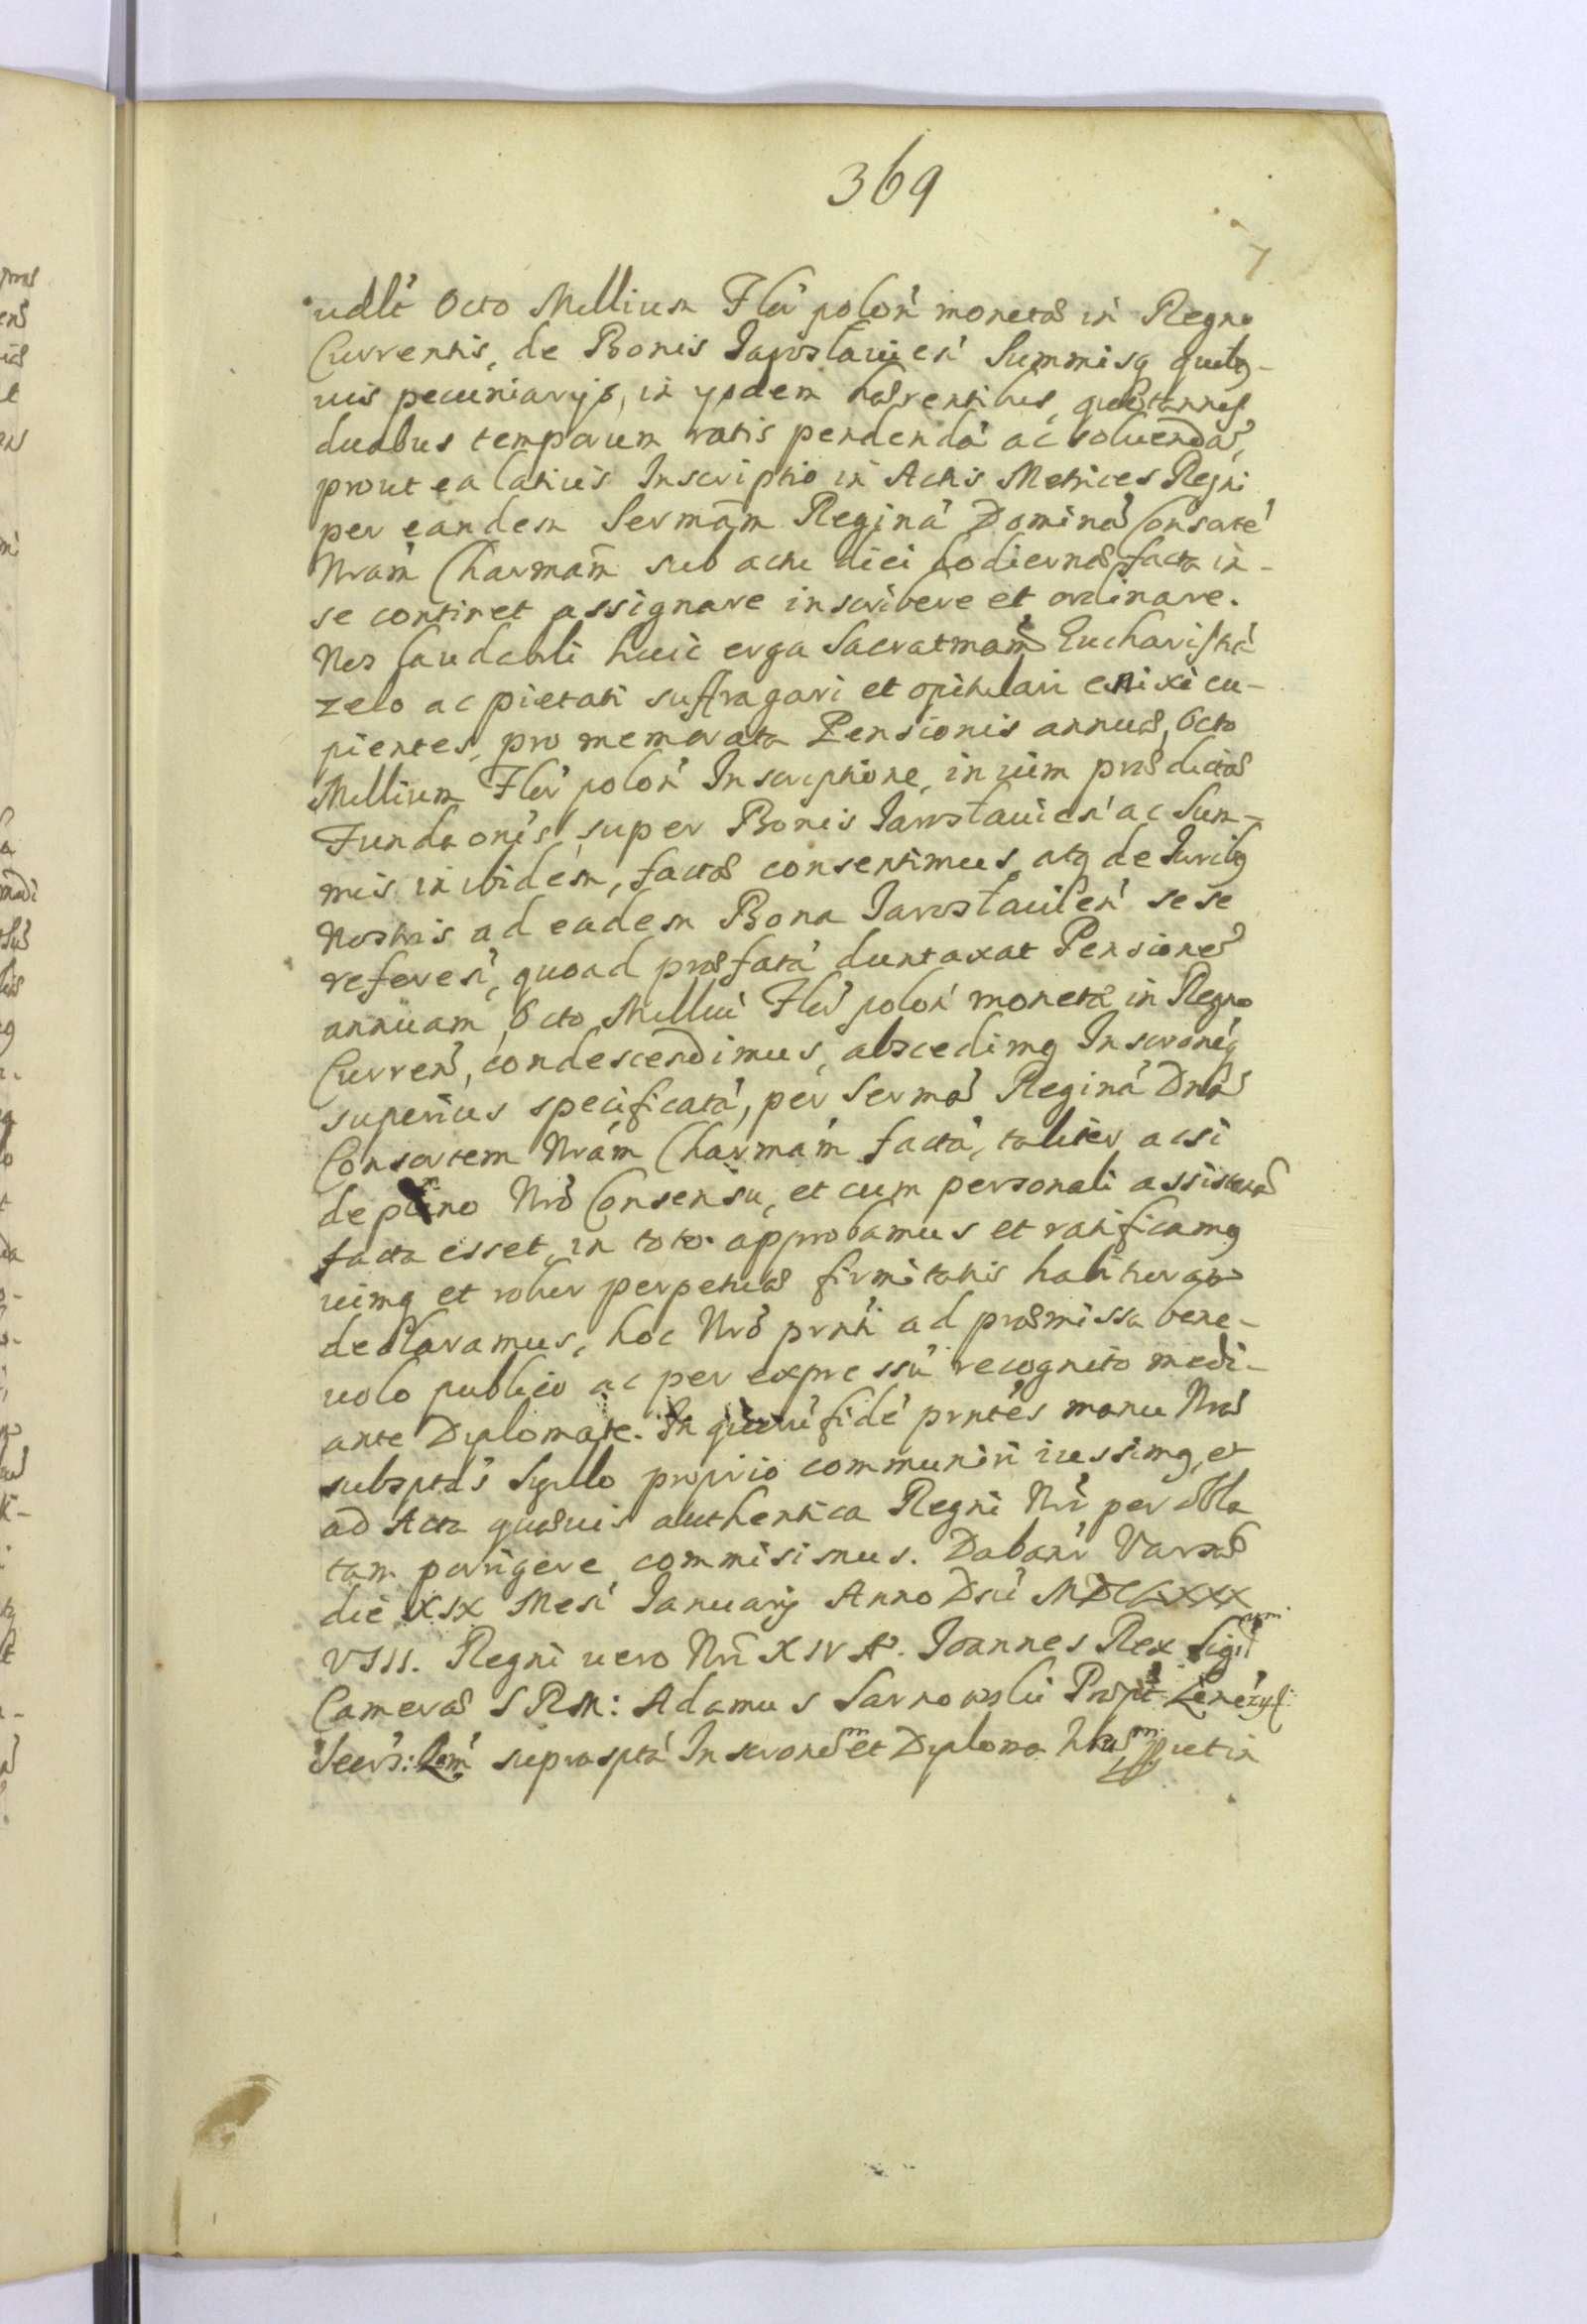 369
7
udlt Octo Millium Flor polon monetæ in Regno
Currentis, de Bonis Jarosłauien Summisq quibq-
uis pecuniarijs, in ijsdem hærentibus, quotannis
duabus temporum ratis pendendá ac soluendá,
prout ea latius Inscriptio in Actis Metrices Regni
per eandem Sermam Reginá Dominá Consorté
Nram Charmam sub actu diei hodiernæ facta in-
se continet assignare inscribere et ordinare.
Nos laudabili huic erga Sacratmam Eucharistiá
zelo ac pietati suffragari et opitulari enixe cu-
pientes, pro memorata Pensionis annuæ, Octo
Millium Flor polon Inscriptione, in uim prædictæ
Fundaonis, super Bonis Jarosłauien ac Sum-
mis inibidem, factæ consentimus, atq de Juribq
Nostris ad eadem Bona Jarosłauien sese
referen, quoad præfatá duntaxat Pensioné
annuam, Octo Milliú Flor polon monetæ in Regno
Curren, condescendimus, abscedimq Inscronéq
superius specificatá, per Sermá Reginá Dná
Consortem Nrám Charmám factá, taliter, acsi
de pleno Nro Consensu, et cum personali assistená
facta esset, in toto approbamus et ratificamq
uimq et robur perpetuæ firmitatis habituram
declaramus, hoc Nro prnti ad præmissa bene-
uolo publico ac per expressú recognito medi-
ante Diplomate. In quorú fidé prntés manu Nrá
subsptás Sygillo proprio communiri iussimq, et
ad Acta quæuis authentica Regni Nri per Obla
tam porrigere commisimus. Dabanr Varsæ
die XIX Mesi Januarij Anno Dni MDCLXXX
VIII. Regni uero Nri XIV Ao. Joannes Rex Sigillum
Cameræ S R M: Adamus Sarnowski Præpt Lenczyc:
Secrs: Qam suprasptá Inscronem et Diploma huiusm uti in